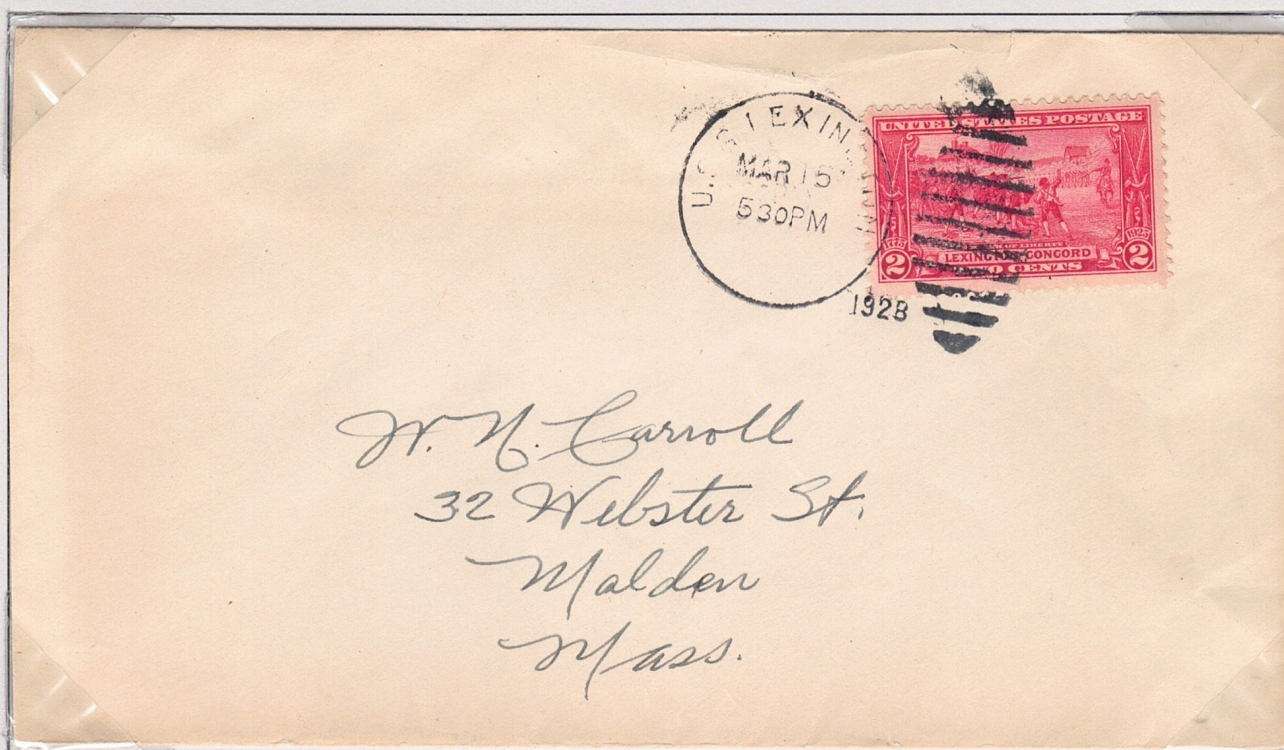 U.S.S. LEXINGTON
MAR 15
5 30 PM
1928
UNITED STATES POSTAGE
1775 1925
OF LIBERTY
LEXINGTON CONCORD
2 2 CENTS 2
W. N. Carroll
32 Webster St.
Malden
Mass.